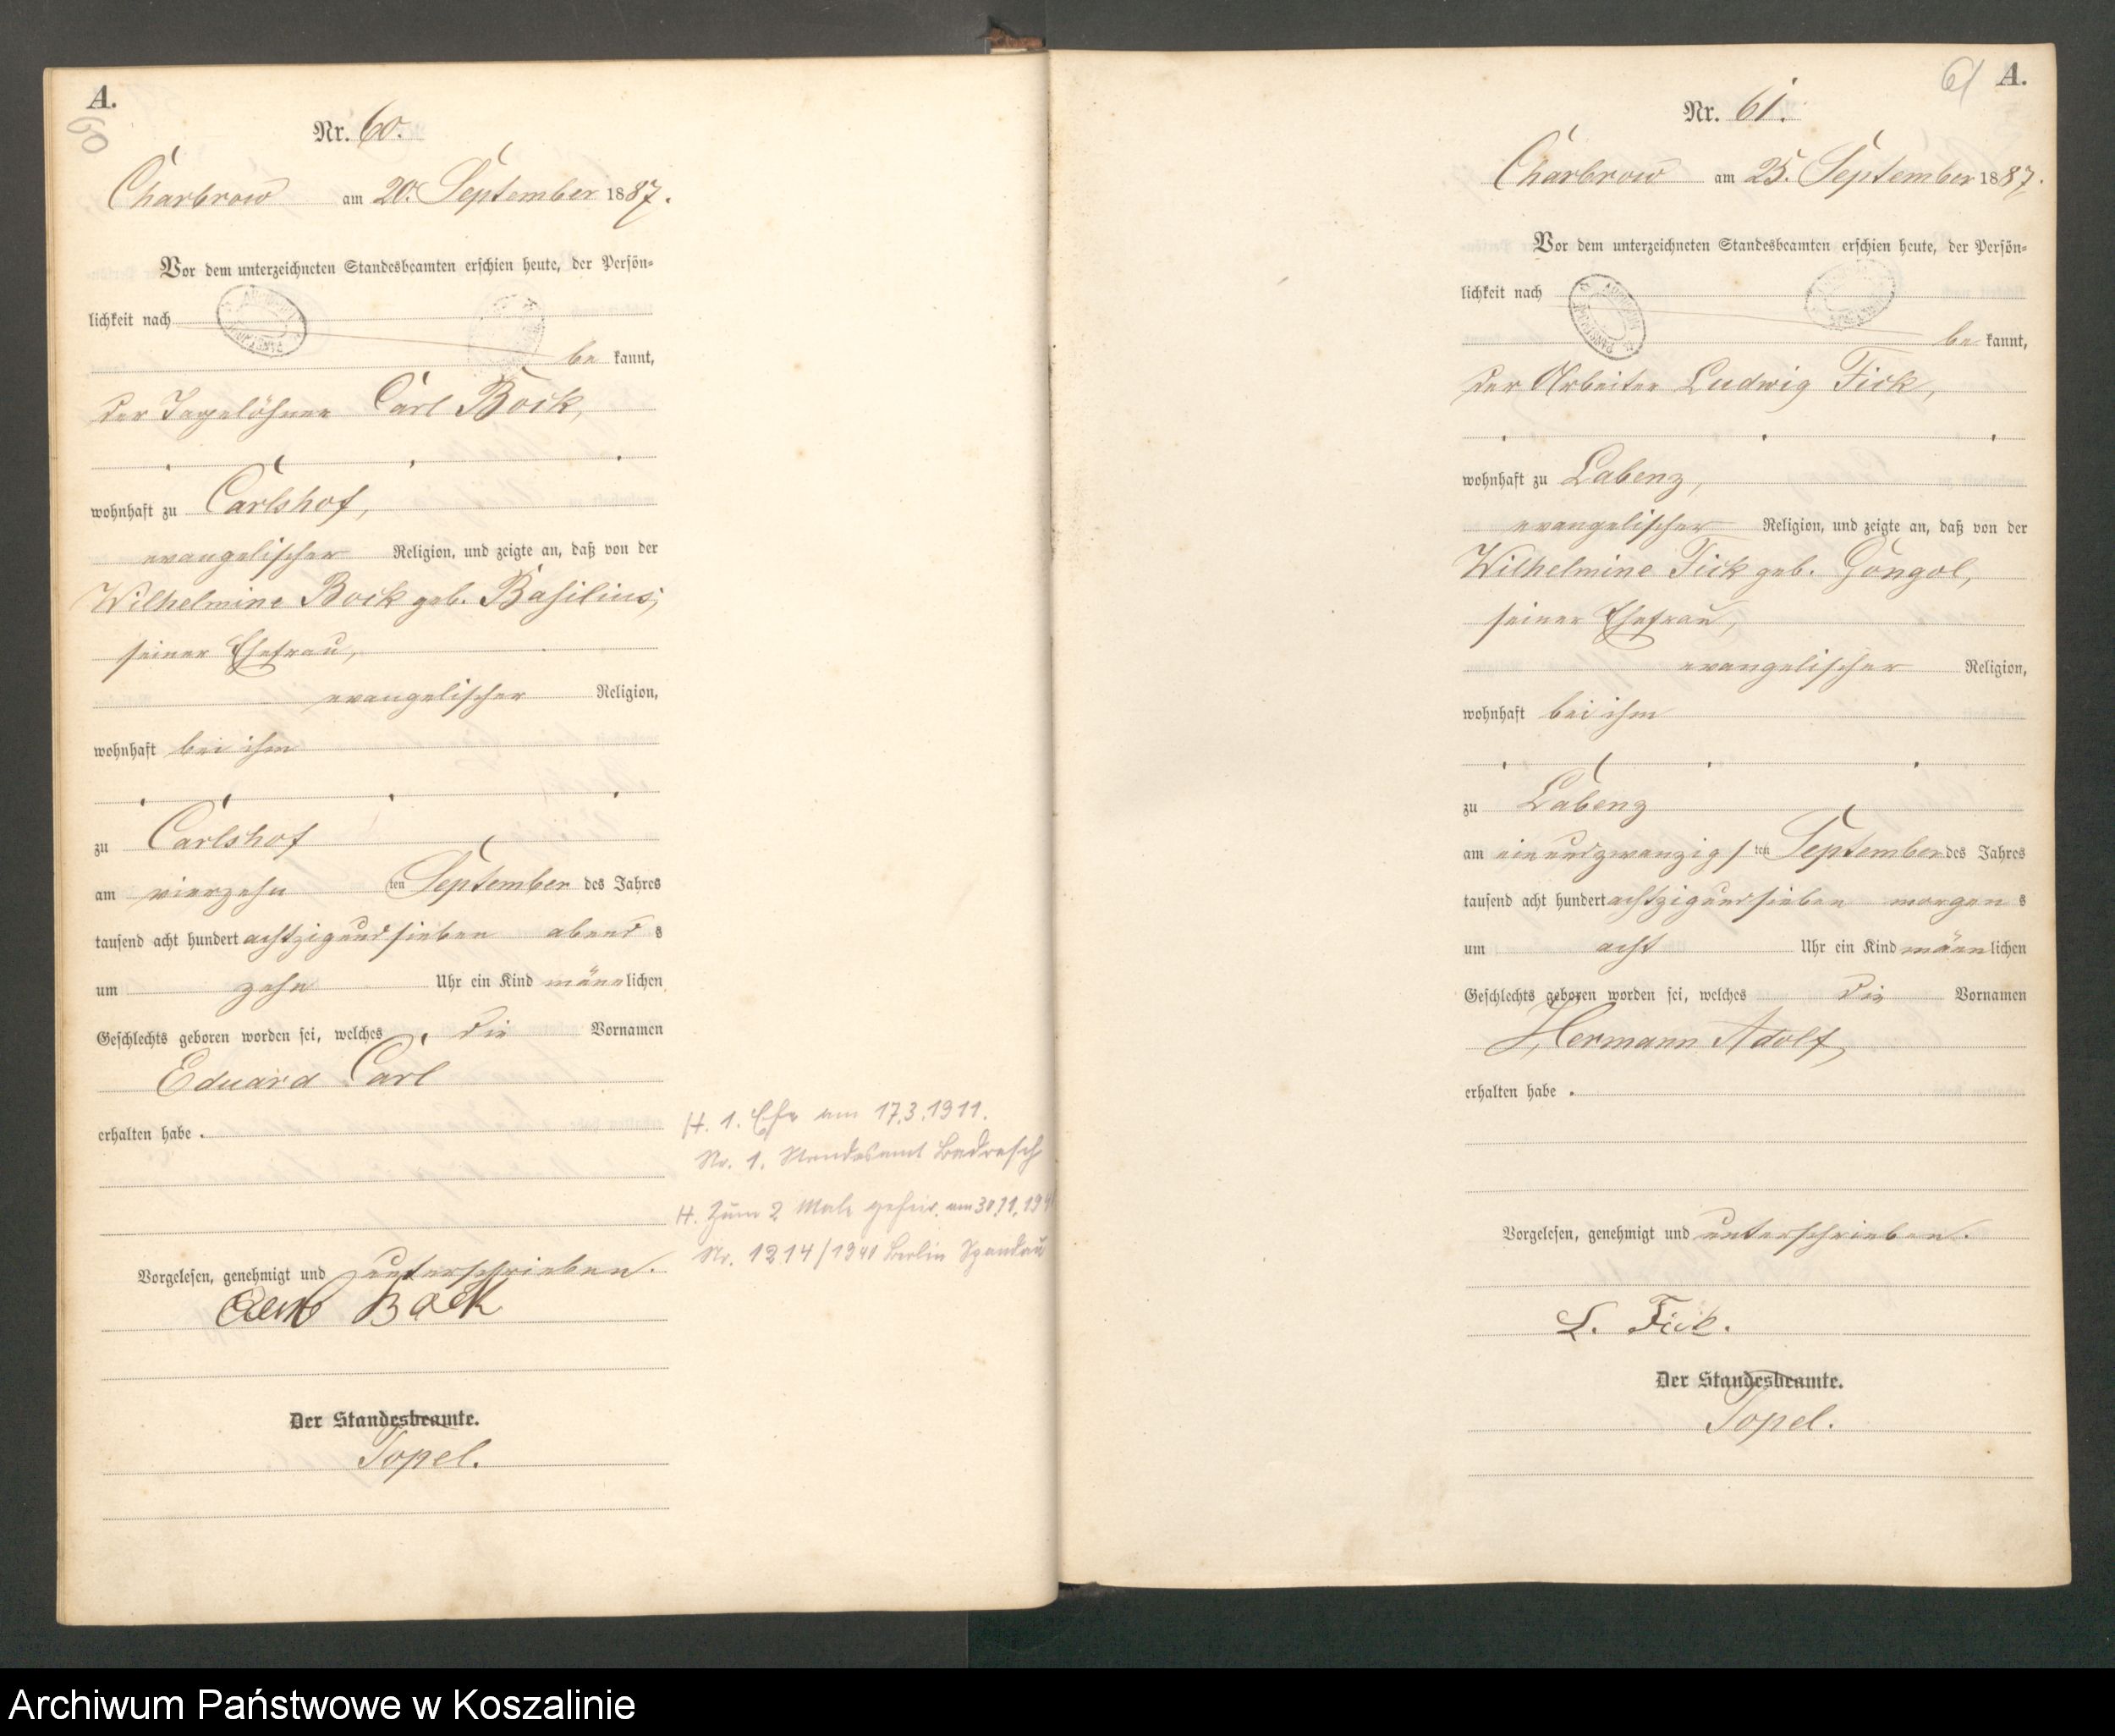 A.
60
Nr. 60.
Charbrow am 20. September 1887.
Vor dem unterzeichneten Standesbeamten erschien heute, der Persön-
lichkeit nach
be kannt,
der Tagelöhner Carl Bock,
wohnhaft zu Carlshof,
evangelischer Religion, und zeigte an, daß von der
Wilhelmine Bock geb. Basilius,
seiner Ehefrau,
evangelischer Religion,
wohnhaft bei ihm
zu Carlshof
am vierzehn ten September des Jahres
tausend acht hundert achtzig und sieben abend s
um zehn Uhr ein Kind männlichen
Geschlechts geboren worden sei, welches die Vornamen
Eduard Carl
erhalten habe .
H. 1. Ehe am 17.3.1911.
Nr. 1. Standesamt
H. Zum 2 Male am 30.11.194
Nr. 1314/1941 Berlin Spandau
Vorgelesen, genehmigt und unterschrieben.
Bock
Der Standesbeamte.
Topel.
61 A.
Nr. 61.
Charbrow am 25. September 1887.
Vor dem unterzeichneten Standesbeamten erschien heute, der Persön-
lichkeit nach
be kannt,
der Arbeiter Ludwig Fick,
wohnhaft zu Labenz,
evangelischer Religion, und zeigte an, daß von der
Wilhelmine Fick geb. Göngol,
seiner Ehefrau,
evangelischer Religion,
wohnhaft bei ihm
zu Labenz
am einundzwanzig / ten September des Jahres
tausend acht hundert achtzig und sieben morgen s
um acht Uhr ein Kind männlichen
Geschlechts geboren worden sei, welches die Vornamen
Hermann Adolf
erhalten habe .
Vorgelesen, genehmigt und unterschrieben.
L. Fick.
Der Standesbeamte.
Topel.
Archiwum Państwowe w Koszalinie